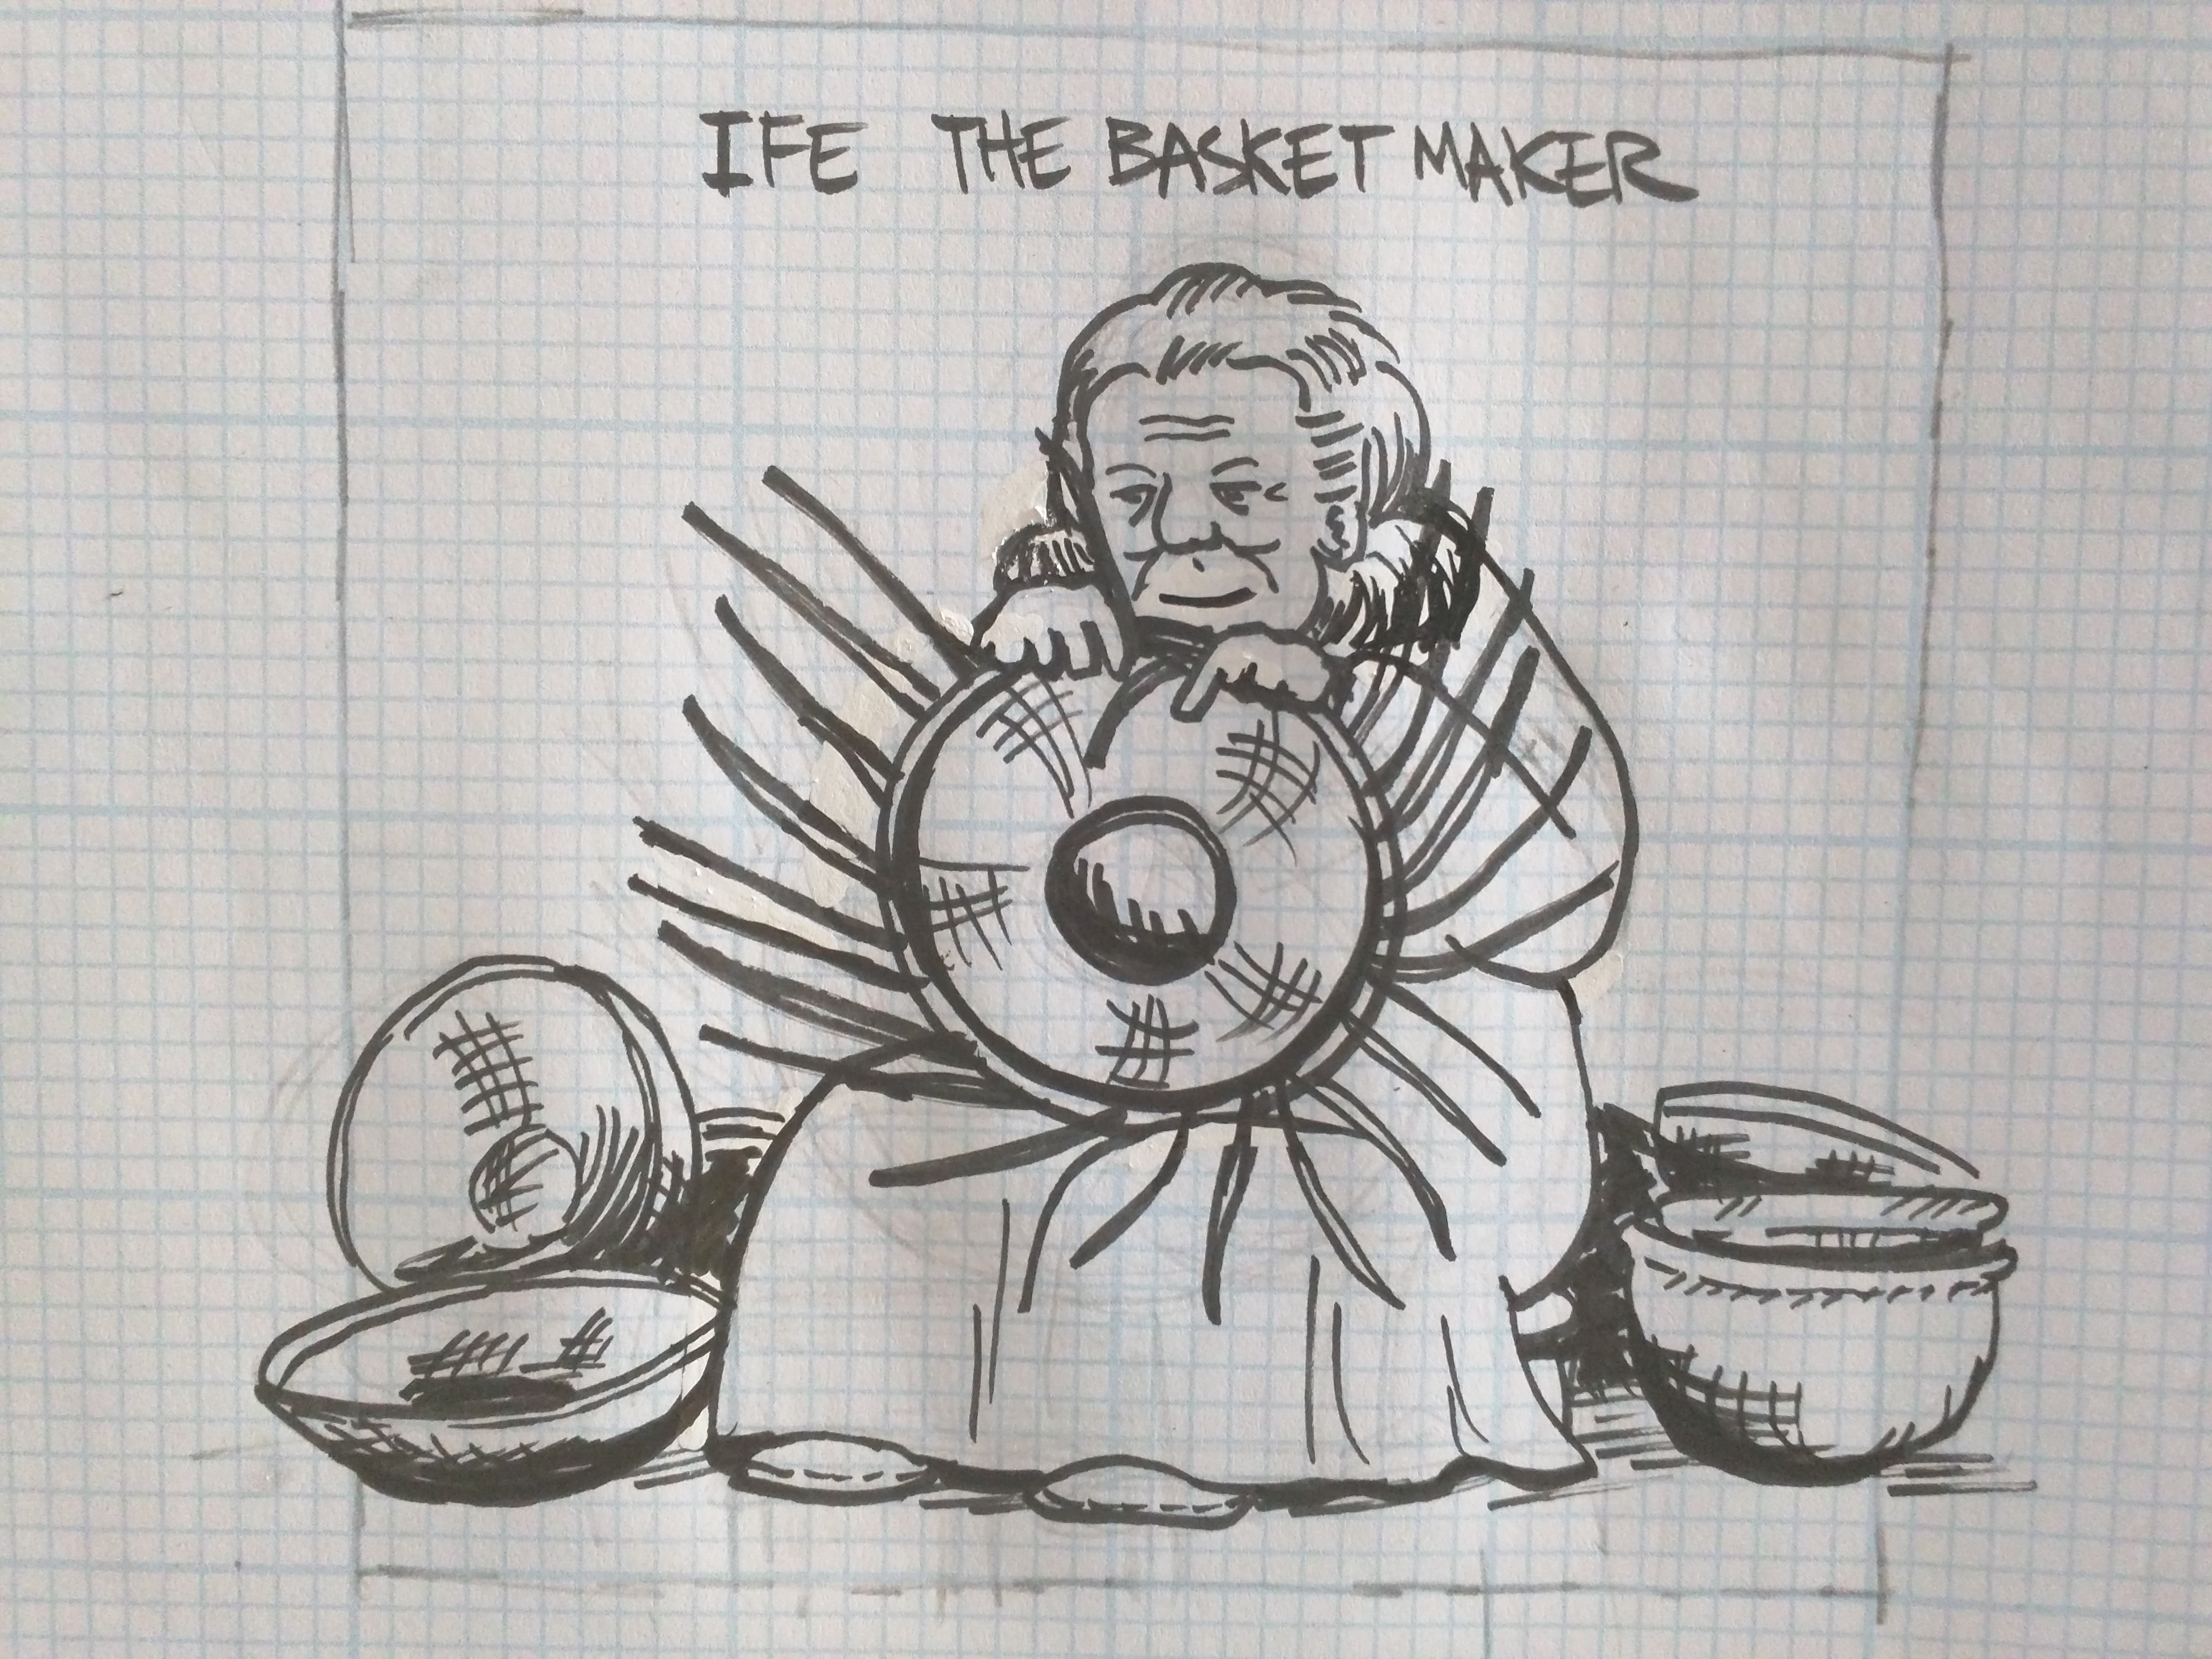 IFE THE BASKET MAKER